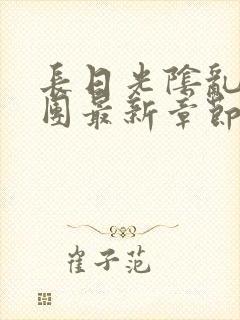 長日光陰亂
團最新章節
崔子范